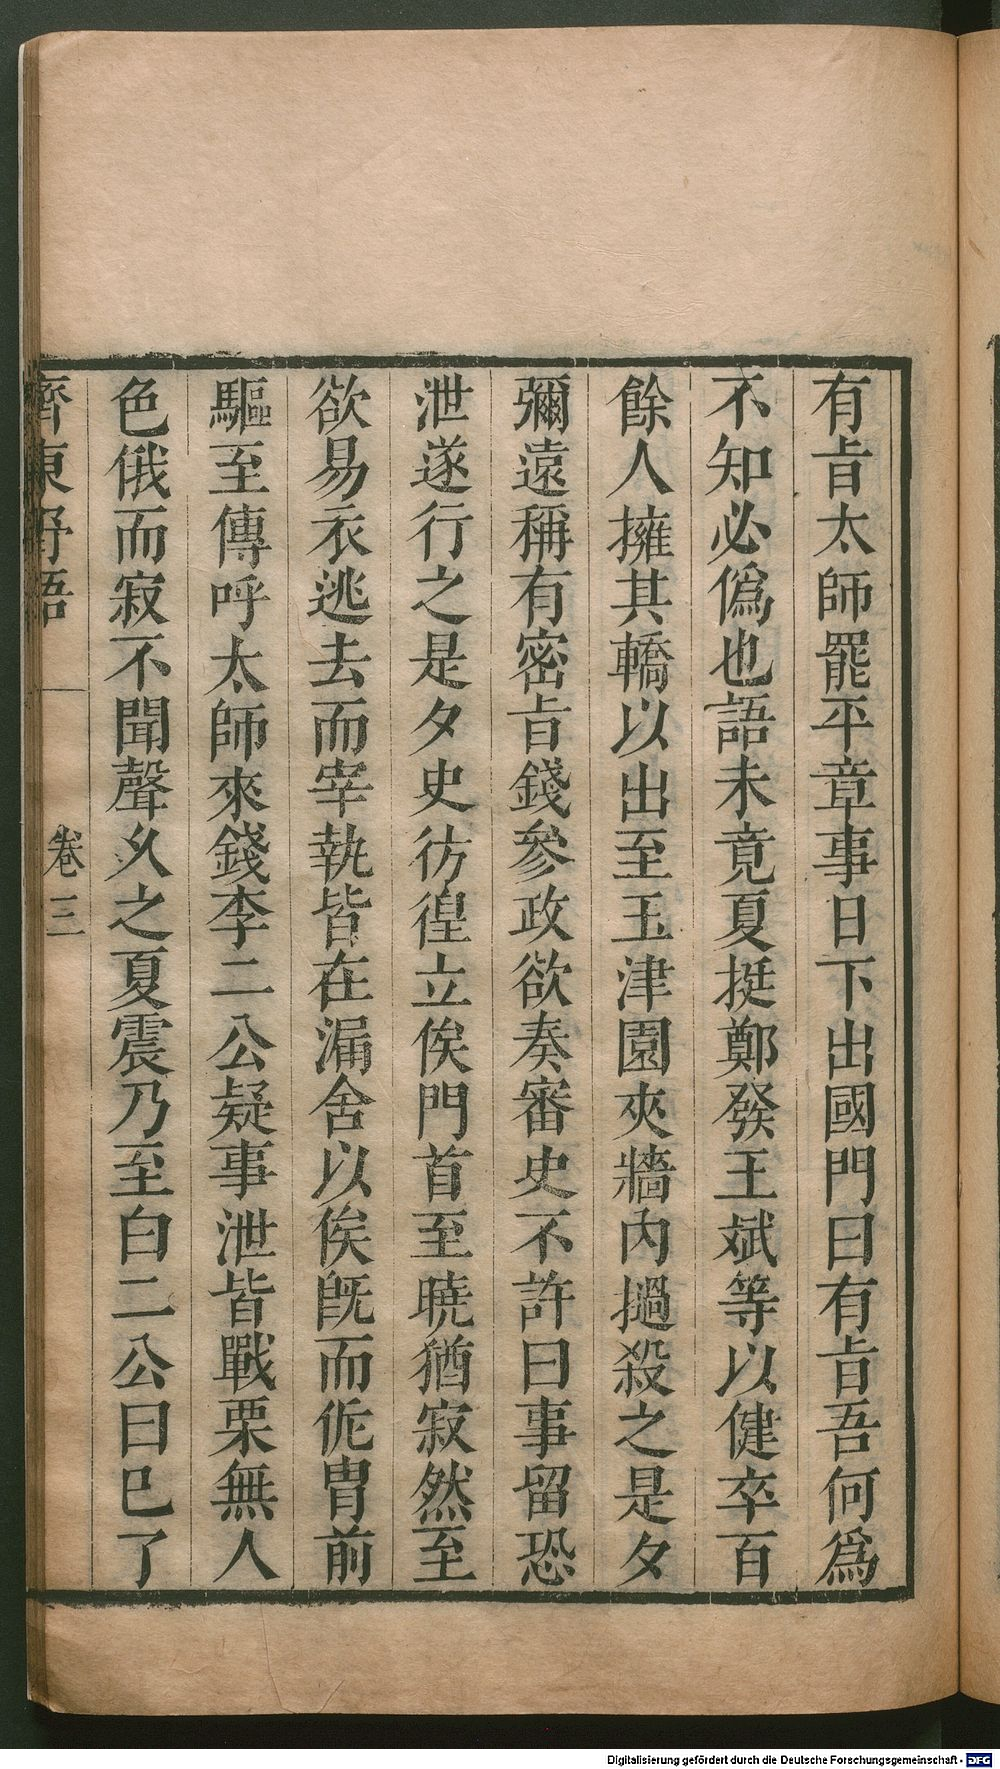 有旨太師罷平章事日下出國門曰有旨吾何爲
不知必僞也語未竟夏挺鄭發王斌等以健卒百
餘人擁其轎以出至玉津園夾牆內撾殺之是夕
彌遠稱有密旨錢參政欲奏審史不許曰事留恐
泄遂行之是夕史彷徨立俟門首至曉猶寂然至
欲易衣逃去而宰執皆在漏舍以俟既而侂冑前
驅至傳呼太師來錢李二公疑事泄皆戰栗無人
色俄而寂不聞聲久之夏震乃至白二公曰巳了
齊東野語 卷三
Digitalisierung gefördert durch die Deutsche Forschungsgemeinschaft - DFG